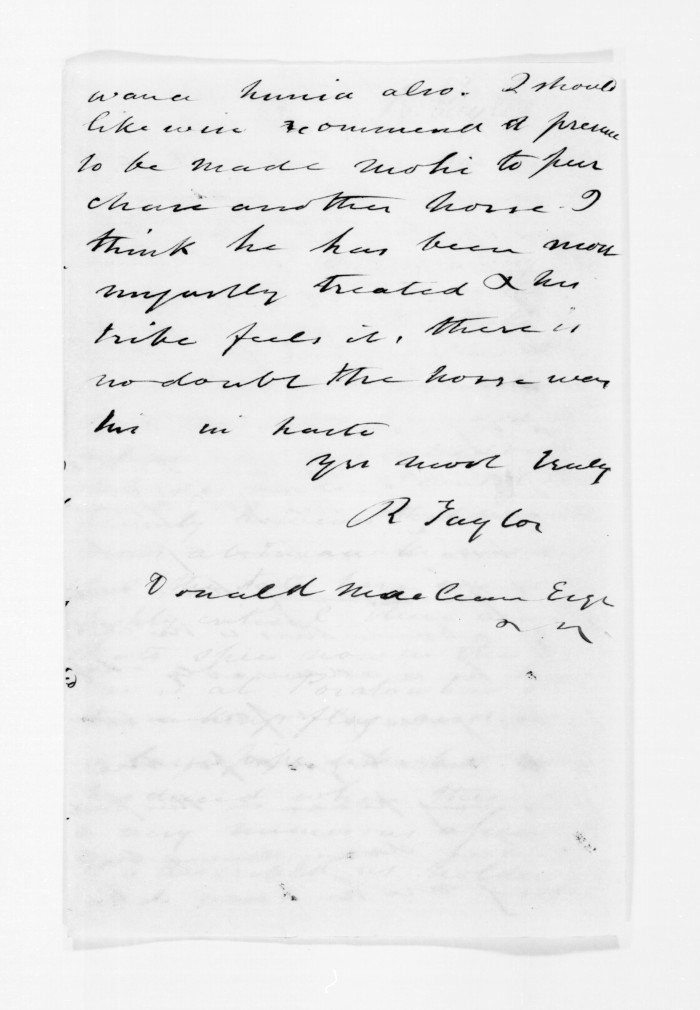 wana hunia also. I should
likewise recommend a present
to be made Mohi to pur
chase another horse. I
think he has been most
unjustly treated & his
tribe feels it, there is
no doubt the horse was
his in haste
Yrs most truly
R Taylor
Donald MacLean Esqr